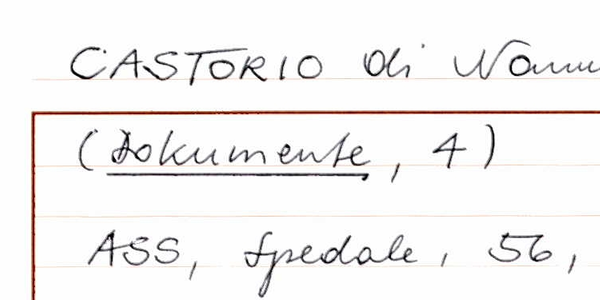 CASTORIO di Nanni
(Dokumente, 4)
ASS, Spedale, 56,